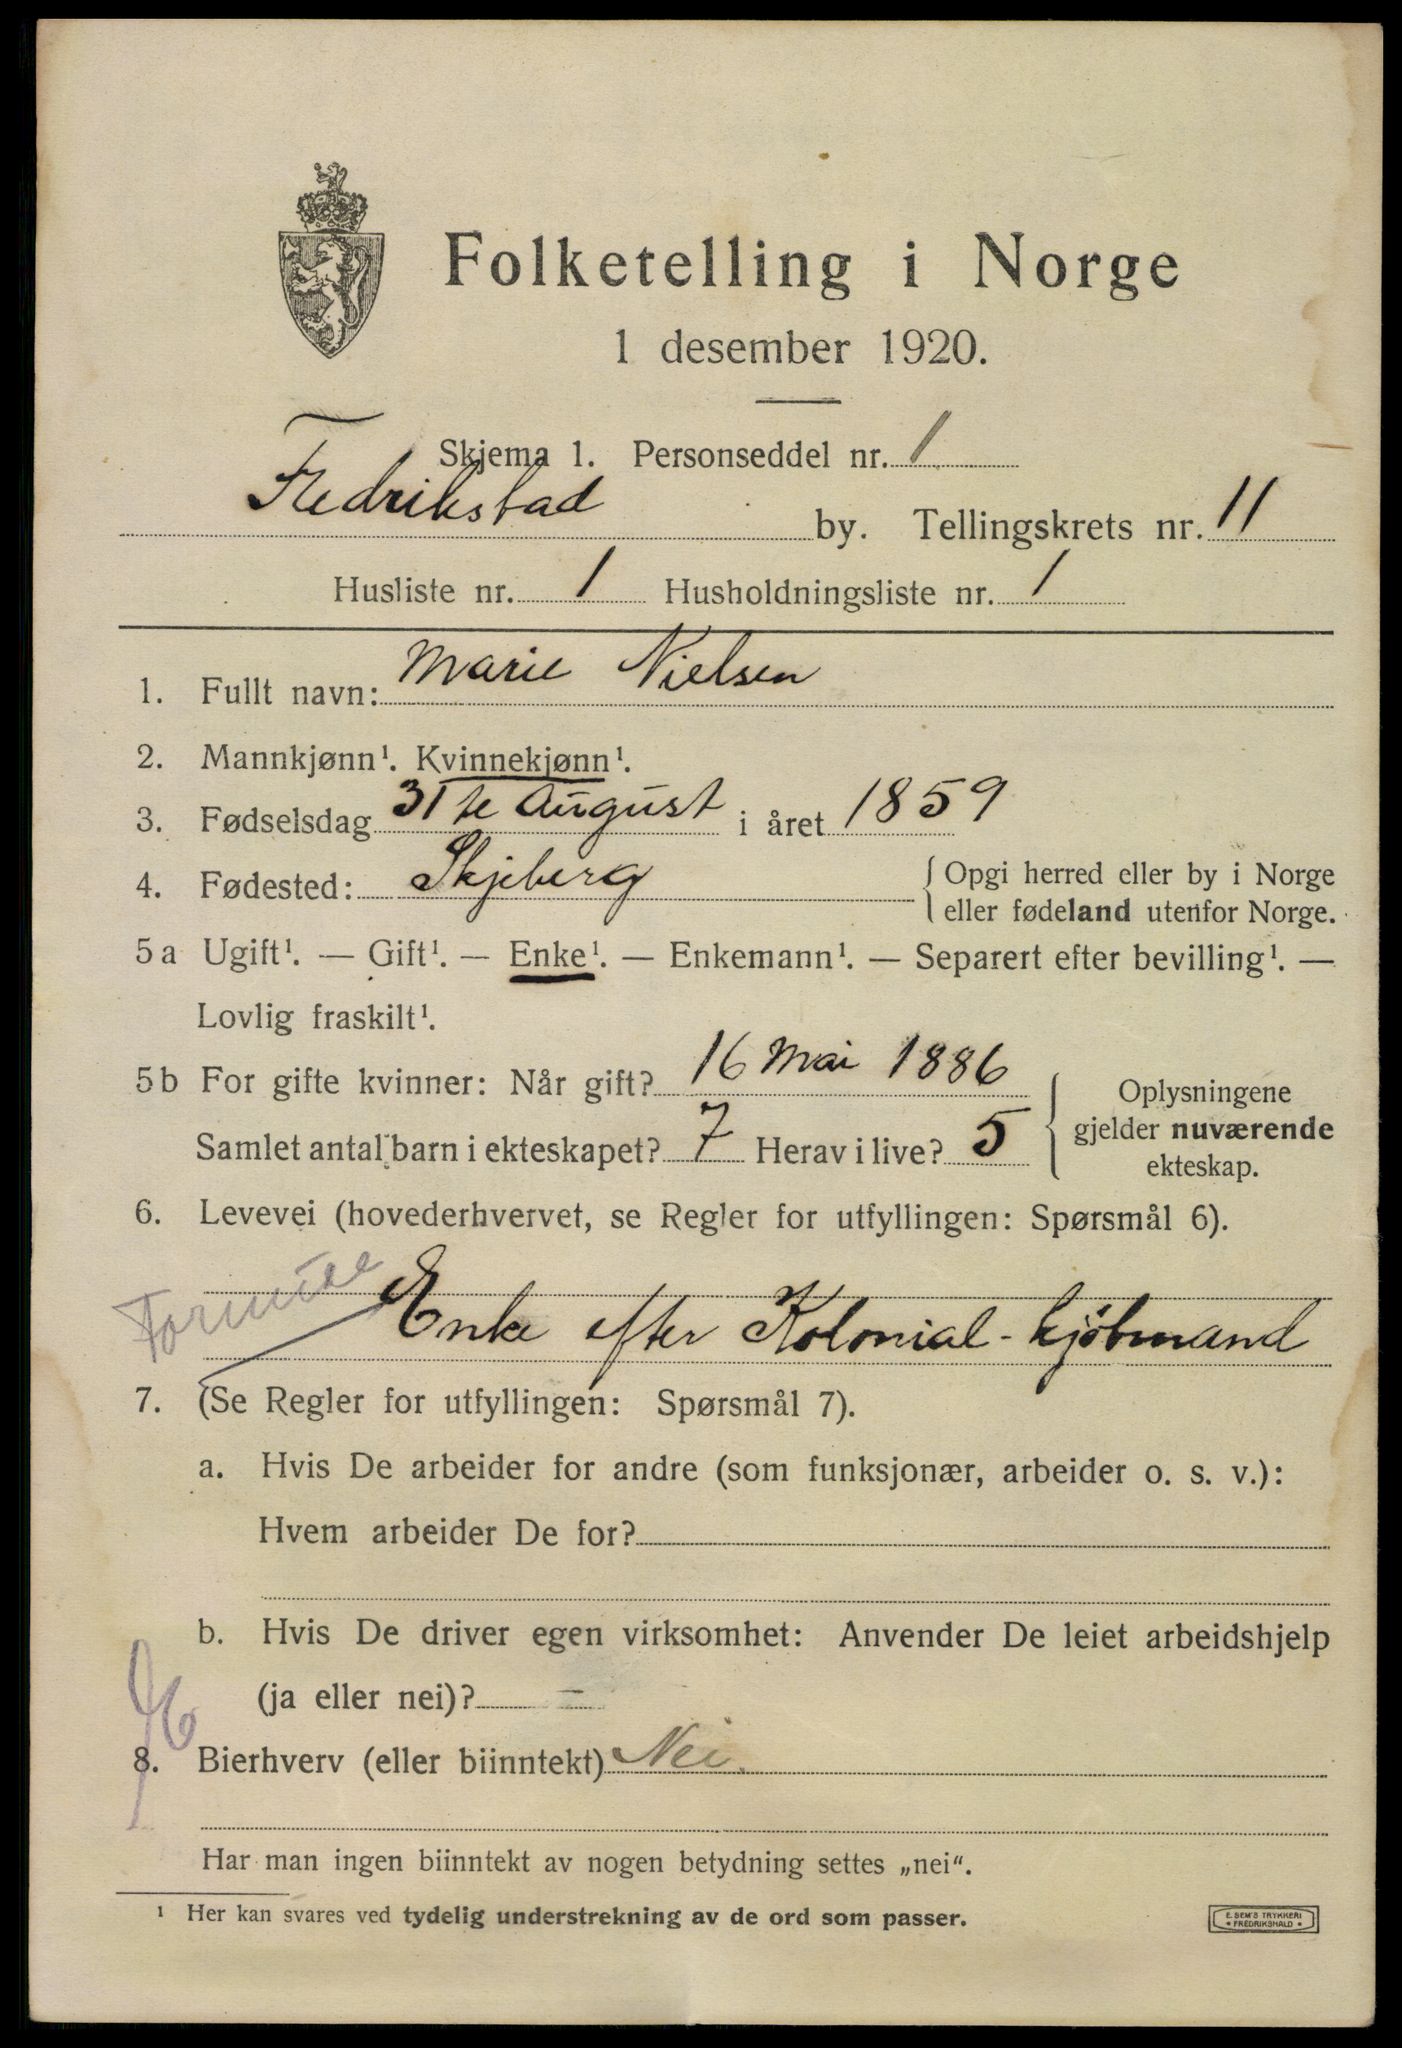 Folketelling i Norge
1 desember 1920.
Skjema 1. Personseddel nr. 1
Fredrikstad by. Tellingskrets nr. 11
Husliste nr. 1 Husholdningsliste nr. 1
1. Fullt navn: Marie Nielsen
2. Mannkjønn¹. Kvinnekjønn¹.
3. Fødselsdag 31te August i året 1859
4. Fødested: Skjeberg { Opgi herred eller by i Norge
eller fødeland utenfor Norge.
5a Ugift¹. — Gift¹. — Enke¹. — Enkemann¹. — Separert efter bevilling¹. —
Lovlig fraskilt¹.
5b For gifte kvinner: Når gift? 16 Mai 1886
Samlet antal barn i ekteskapet? 7 Herav i live? 5
{ Oplysningene
gjelder nuværende
ekteskap.
6. Levevei (hovederhvervet, se Regler for utfyllingen: Spørsmål 6).
Formue
Enke efter Kolonial-kjöbmand
7. (Se Regler for utfyllingen: Spørsmål 7).
a. Hvis De arbeider for andre (som funksjonær, arbeider o. s. v.):
Hvem arbeider De for?
b. Hvis De driver egen virksomhet: Anvender De leiet arbeidshjelp
(ja eller nei)? –
8. Bierhverv (eller biinntekt) Nei.
Har man ingen biinntekt av nogen betydning settes „nei“.
¹ Her kan svares ved tydelig understrekning av de ord som passer.
E. SEM'S TRYKKERI
* FREDRIKSHALD *